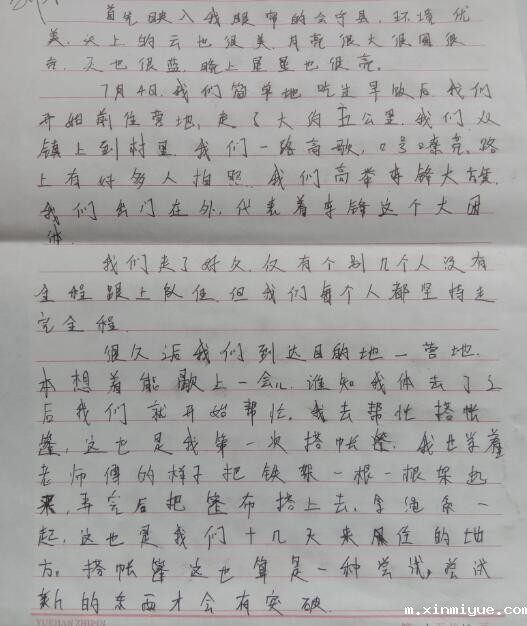 首先映入我眼帘的会宁县,环境优
美,天上的云也很美,月亮很大很圆很
亮,天也很蓝,晚上星星也很亮。
7月4日,我们简单地吃过早饭后我们
开始前往营地,走了大约五公里,我们从
镇上到村里,我们一路高歌,口号嘹亮,路
上有好多人拍照,我们高举东锋大旗,
我们出门在外,代表着东锋这个大团
体
我们走了好久,仅有个别几个人没有
全程跟上队伍,但我们每个人都坚持走
完全程.
很久后我们到达目的地一营地.
本想着能歇上一会儿,谁知我们去了之
后我们就开始帮忙,我去帮忙搭帐
篷,这也是我第一次搭帐篷,我也学着
老师傅的样子把铁架一根一根架起
来,弄完后把篷布搭上去,拿绳条一
起,这也是我们十几天来居住的地
方。搭帐篷这也算是一种尝试,尝试
新的东西才会有突破.
YUEHANZHIPIN
m.xinmiyue.com